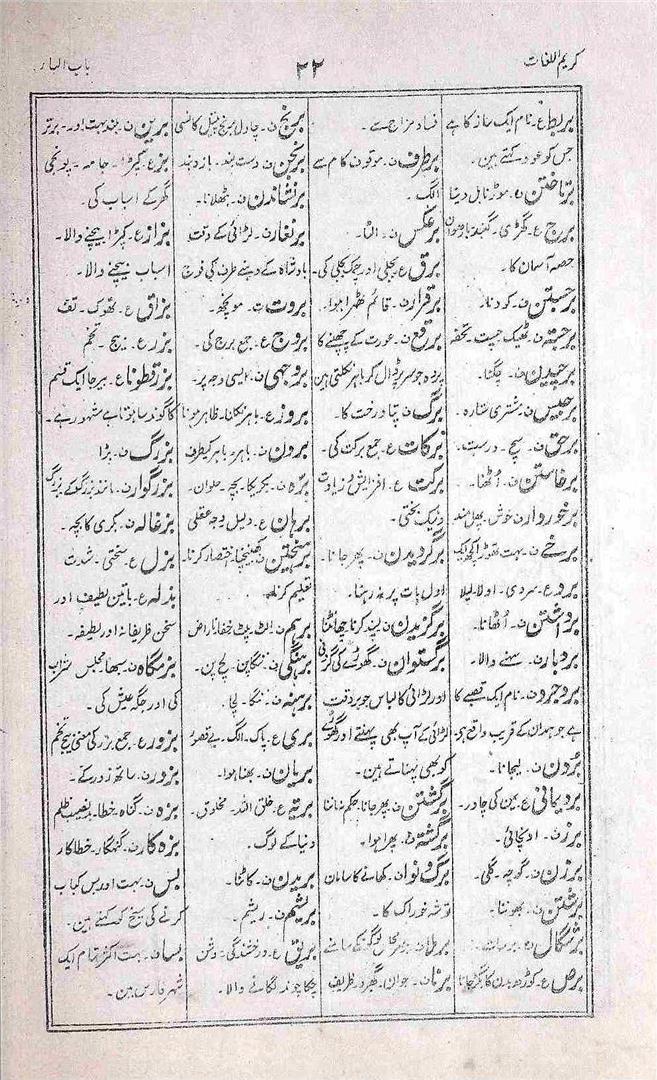 کریم اللغات
۲۲
باب الباء
بربط ع۔ نام ایک ساز کا ہے
جس کو عود کہتے ہین۔
برتافتن ف۔ موڑنا بل دینا
برج ع۔ گڑی۔ گنبد بارھوان
حصہ آسمان کا۔
برجستن ف۔ کودنا۔
برجستہ ف۔ ٹھیک چست۔ تحفہ
برچیدن ف۔ چگنا۔
برجیس ف۔ مشتری ستارہ۔
برحق ف۔ سچ۔ درست۔
برخاستن ف۔ اُٹھنا۔
برخوردار ف۔ خوش۔ پھل مند
برخے ف۔ بہت تھوڑا کچھ ایک
برد ع۔ سردی۔ اولا۔ لیلا
برداشتن ف۔ اُٹھانا۔
بردبار ف۔ سہنے والا۔
بروجرد ف۔ نام ایک قصبے کا
ہے جو ہمدان کے قریب واقع ہی
بردن ف۔ لیجانا۔
بردیمانی ع۔ یمن کی چادر۔
برز ف۔ اونچائی۔
برزن ف۔ کوچہ۔ گلی۔
برشتن ف۔ بھوننا۔
برشگال ف۔ برسات۔
برص ع۔ کوڑھ بدن کا بگڑ جانا
فساد مزاج سے۔
برطرف ف۔ موقوف کام سے
الگ۔
برعکس ف۔ الٹا۔
برق ع۔ بجلی اور چمک بجلی کی۔
برقرار ف۔ قائم ٹھرا ہوا۔
برقع ف۔ عورت کے چھپنے کا
پردہ جو سر پر ڈال کر باہر نکلتی ہین
برگ ف۔ پتا درخت کا۔
برکات ع۔ جمع برکت کی۔
برکت ع۔ افزایش زیادت
و نیک بختی۔
برگردیدن ف۔ پھر جانا۔
اول بات پر نہ رہنا۔
برگزیدن ف۔ پسند کرنا چھانٹنا
برگستوان ف۔ گھوڑے کی گردنی
اور لڑائی کا لباس جو بروقت
لڑائی کے آپ بھی پہنتے اور گھوڑے
کو بھی پہناتے ہین۔
برگشتن ف۔ پھر جانا حکم نہ ماننا
برگشتہ ف۔ پھرا ہوا۔
برگ و نوا ف۔ کھانے کا سامان
توشہ خوراک کا۔
برملا ف۔ کے سامنے
برنا ف۔ جوان۔ گبرو۔ ظریف
برنج ف۔ چاول برنج پیتل کانسی
برنجن ف۔ دست بند۔ بازو بند
برنشاندن ف۔ بٹھلانا۔
برنغار ف۔ لڑائی کے وقت
بادشاہ کے دہنے طرف کی فوج
بروت ت۔ مونچھ۔
بروج ع۔ جمع برج کی۔
بروجہی ف۔ ایسی وجہ پر۔
بروز ع۔ باہر نکلنا۔ ظاہر ہونا
برون ف۔ باہر۔ باہر کیطرف
برہ ف۔ بکری کا بچہ۔ حلوان۔
برہان ع۔ دلیل وجہ عقلی
کھینچنا۔ اختصار کرنا۔
تعلیم کرنا۔
برہم ف۔ الٹ پلٹ خفا ناراض
برہنگی ف۔ ننگا پن۔ لچ پن۔
برہنہ ف۔ ننگا۔ لچا۔
بری ع۔ پاک۔ الگ۔ بے قصور
بریان ف۔ بھنا ہوا۔
بریہ ع۔ خلق اللہ۔ مخلوق۔
دنیا کے لوگ۔
بریدن ف۔ کاٹنا۔
بریشم ف۔ ریشم۔
بریق ع۔ درخشندگی۔ روشن
چکاچوند لگانے والا۔
برین ف۔ بلند بہت اور۔ برتر
بز ع۔ کپڑا۔ جامہ۔ پونجی
گھر کے اسباب کی۔
بزاز ع۔ کپڑا بیچنے والا۔
اسباب بیچنے والا۔
بزاق ع۔ تھوک۔ تف
بزر ع۔ بیج۔ تخم
بزرقطونا ع۔ بیرجا ایک قسم
کا گوند سا ہوتا ہے مشہور ہے۔
بزرگ ف۔ بڑا
بزرگوار ف۔ مانند بزرگو کے بزرگ
بزغالہ ف۔ بکری کا بچہ۔
بزل ع۔ سختی۔ شدت
بذلہ ع۔ باتین لطیف اور
سخن ظریفانہ اور لطیفہ۔
بزمگاہ ف۔ سبھا مجلس شراب
کی اور جگہ عیش کی۔
بزور ع۔ جمع بزر کی معنی بیج تخم
بزور ف۔ ساتھ زور کے۔
بزہ ف۔ گناہ۔ خطا۔ بے نصیب ظلم
بزہ کار ف۔ گنہگار۔ خطاکار
بس ف۔ بہت اور بس کباب
کرنے کی سیخ کو کہتے ہین۔
بسا ف۔ بہت اکثر تمام ایک
شہر فارس مین۔